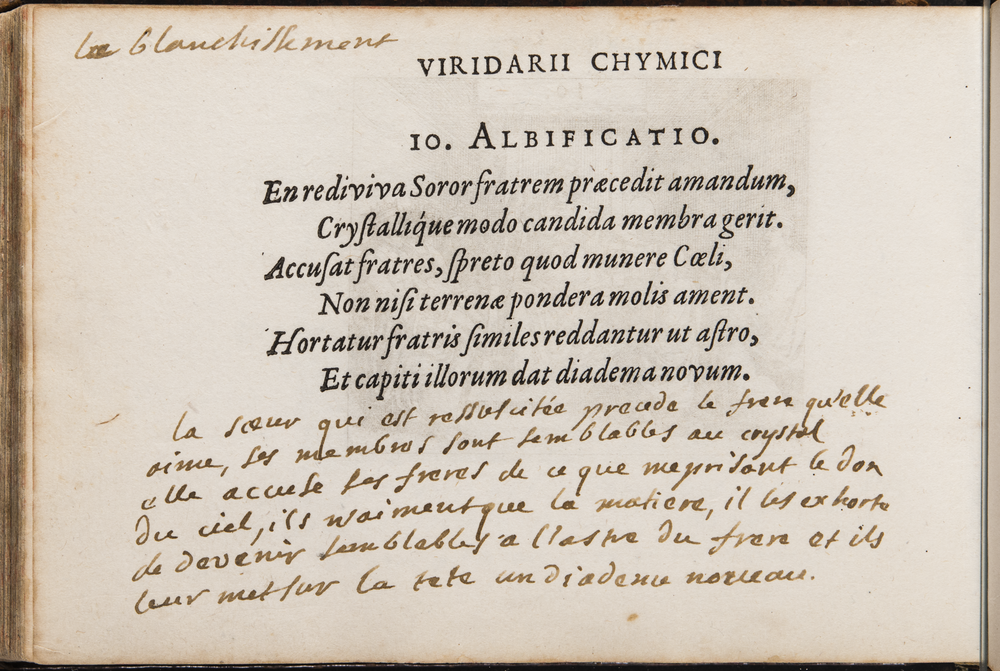 le blanchissement
VIRIDARII CHYMICI
10. ALBIFICATIO.
En rediviva Soror fratrem præcedit amandum,
Cryſtallíque modo candida membra gerit.
Accuſat fratres, ſpreto quod munere Cœli,
Non niſi terrenæ pondera molis ament.
Hortatur fratris ſimiles reddantur ut aſtro,
Et capiti illorum dat diadema novum.
la sœur qui est ressuscitée precede le frere qu'elle
aime, ses membres sont semblables au crystal
elle accuse ses freres de ce que meprisant le don
du ciel, ils n'aiment que la matiere, il les exhorte
de devenir semblables a l'astre du frere et ils
leur met sur la tete un diademe nouveau.